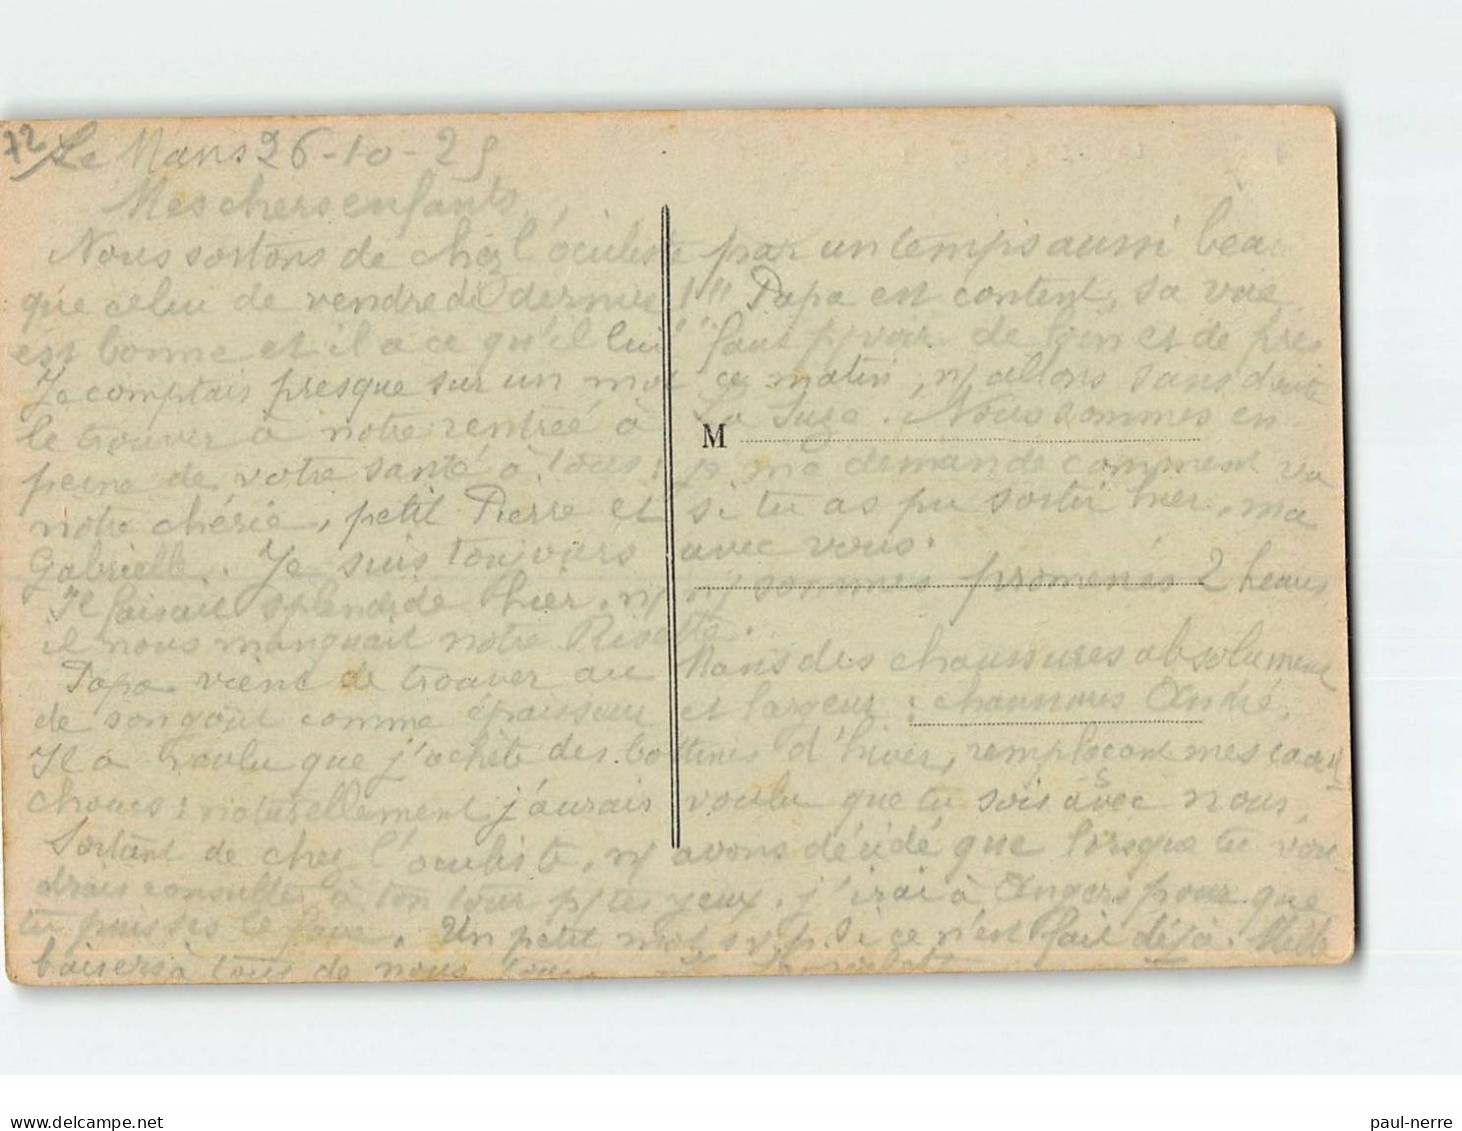 72
Le Mans 26-10-25
Mes chers enfants,
Nous sortons de chez l'oculiste par un temps aussi beau
que celui de vendredi dernier !!! Papa est content, sa vue
est bonne et il a ce qu'il lui faut p/ voir de loin et de près
Je comptais presque sur un mot ce matin, n/ allons sans doute
le trouver à notre rentrée à La Suze. Nous sommes en
M
peine de votre santé à tous : je me demande comment va
notre chérie, petit Pierre et si tu as pu sortir hier, ma
Gabrielle. Je suis toujours avec vous.
Il faisait splendide hier, n/ n/ sommes promenés 2 heures
il nous manquait notre Risette.
Papa vient de trouver au Mans des chaussures absolument
de son goût comme épaisseur et largeur : chaussures André.
Il a voulu que j'achète des bottines d'hiver, remplaçant mes caout
choucs : naturellement j'aurais voulu que tu sois avec nous.
Sortant de chez l'oculiste, n/ avons décidé que lorsque tu vou
drais consulter à ton tour p/ tes yeux, j'irai à Angers pour que
tu puisses le faire. Un petit mot s.v.p. si ce n'est fait déjà. Mille
baisers à tous de nous tous.
paul-nerre